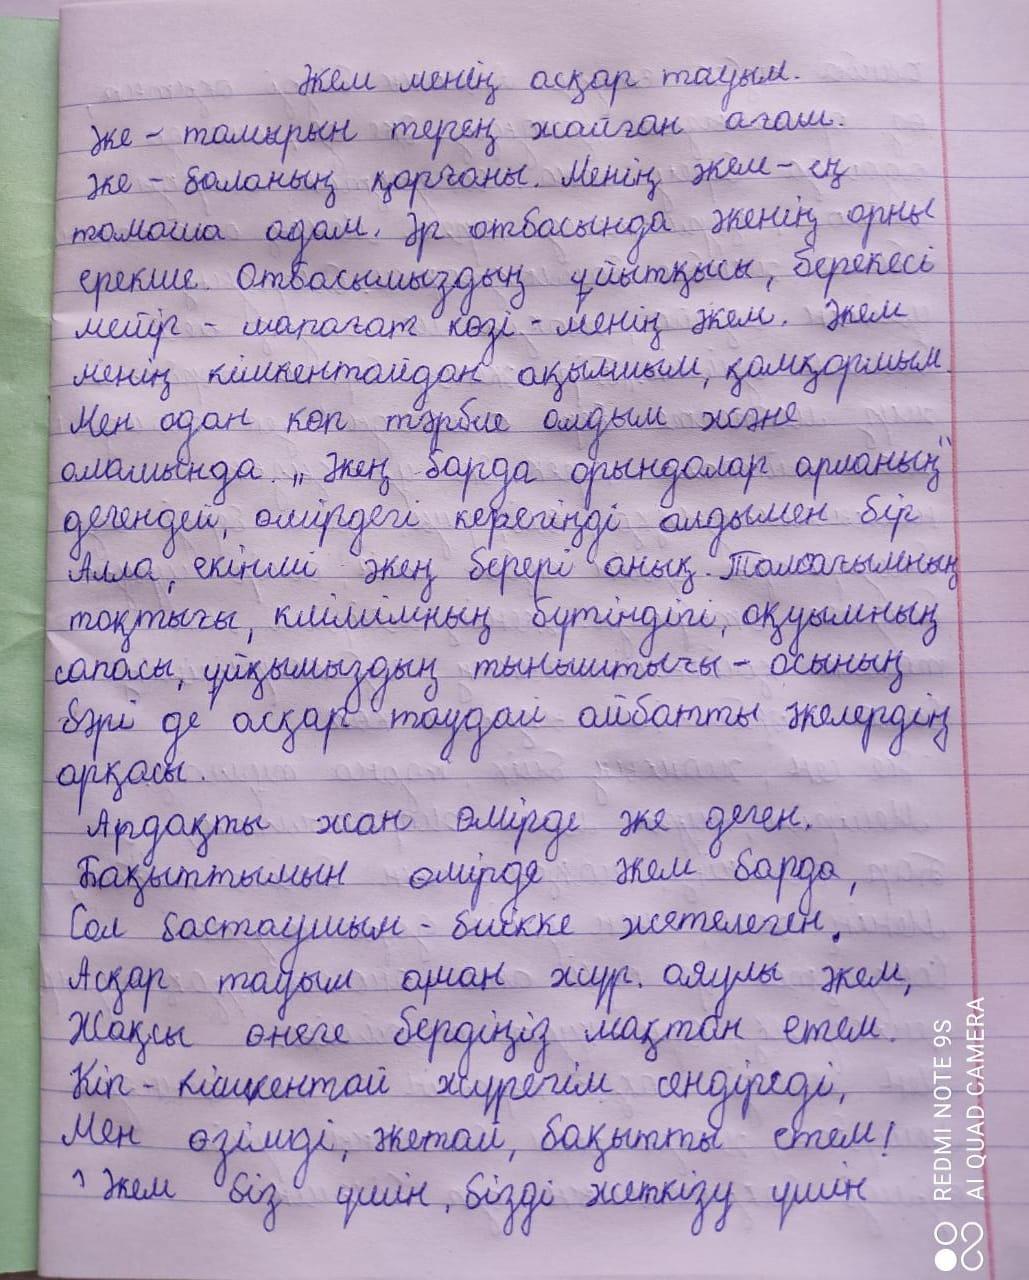 Әкем менің асқар тауым.
Әке - тамырын терең жайған ағаш.
Әке - баланың қорғаны. Менің әкем - ең
тамаша адам. Әр отбасында әкенің орны
ерекше. Отбасымыздың ұйытқысы, берекесі
мейір - шапағат көзі - менің әкем. Әкем
менің кішкентайдан ақылшым, қамқоршым.
Мен одан көп тәрбие алдым және
аламында. „Әкең барда орындалар арманың"
дегендей, өмірдегі керегіңді алдымен бір
Алла, екінші әкең берері анық. Тамағымның
тоқтығы, киімімнің бүтіндігі, оқуымның
сапасы, ұйқымыздың тыныштығы - осының
бәрі де асқар таудай айбатты әкелердің
арқасы.
Ардақты жан өмірде әке деген.
Бақыттымын өмірде әкем барда,
Сол бастаушым - биікке жетелеген.
Асқар тауым аман жүр. аяулы әкем,
Жақсы өнеге бердіңіз мақтан етем.
Кіп - кішкентай жүрегім сендіреді,
Мен өзімді, әкетай, бақытты етем!
Әкем біз үшін, бізді жеткізу үшін
REDMI NOTE 9S
AI QUAD CAMERA